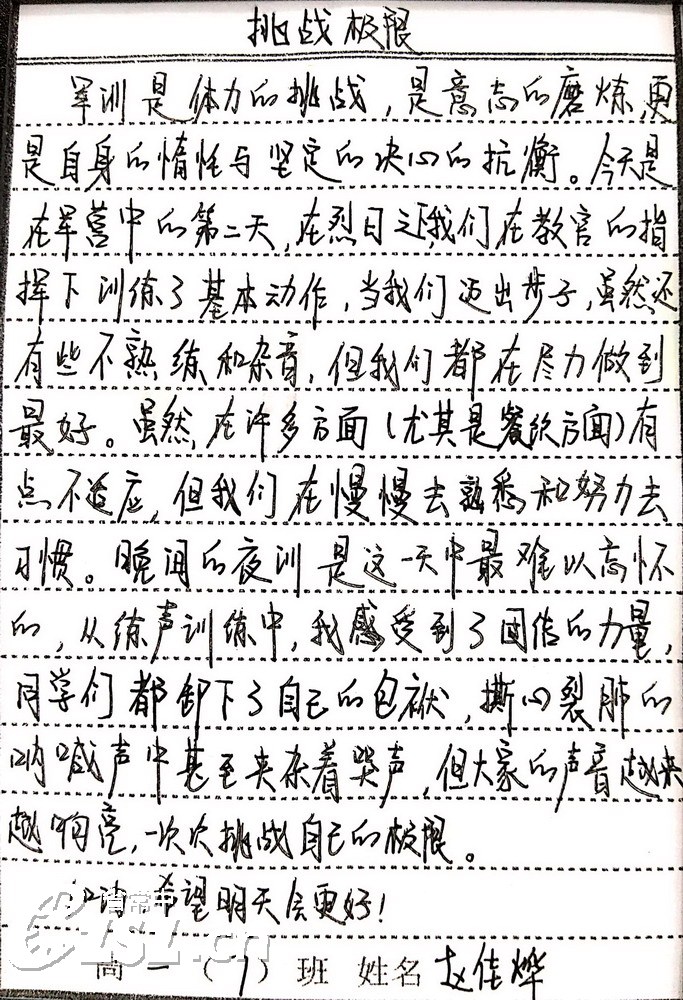 挑战极限
军训是体力的挑战，是意志的磨炼，更
是自身的惰性与坚定的决心的抗衡。今天是
在军营中的第二天，在烈日之下我们在教官的指
挥下训练了基本动作，当我们迈出步子，虽然还
有些不熟练和杂音，但我们都在尽力做到
最好。虽然，在许多方面（尤其是餐饮方面）有
点不适应，但我们在慢慢去熟悉和努力去
习惯。晚间的夜训是这一天中最难以忘怀
的，从练声训练中，我感受到了团结的力量，
同学们都卸下了自己的包袱，撕心裂肺的
呐喊声中甚至夹杂着哭声，但大家的声音越来
越响亮，一次次挑战自己的极限。
希望明天会更好！
高一（7）班 姓名 赵佳烨